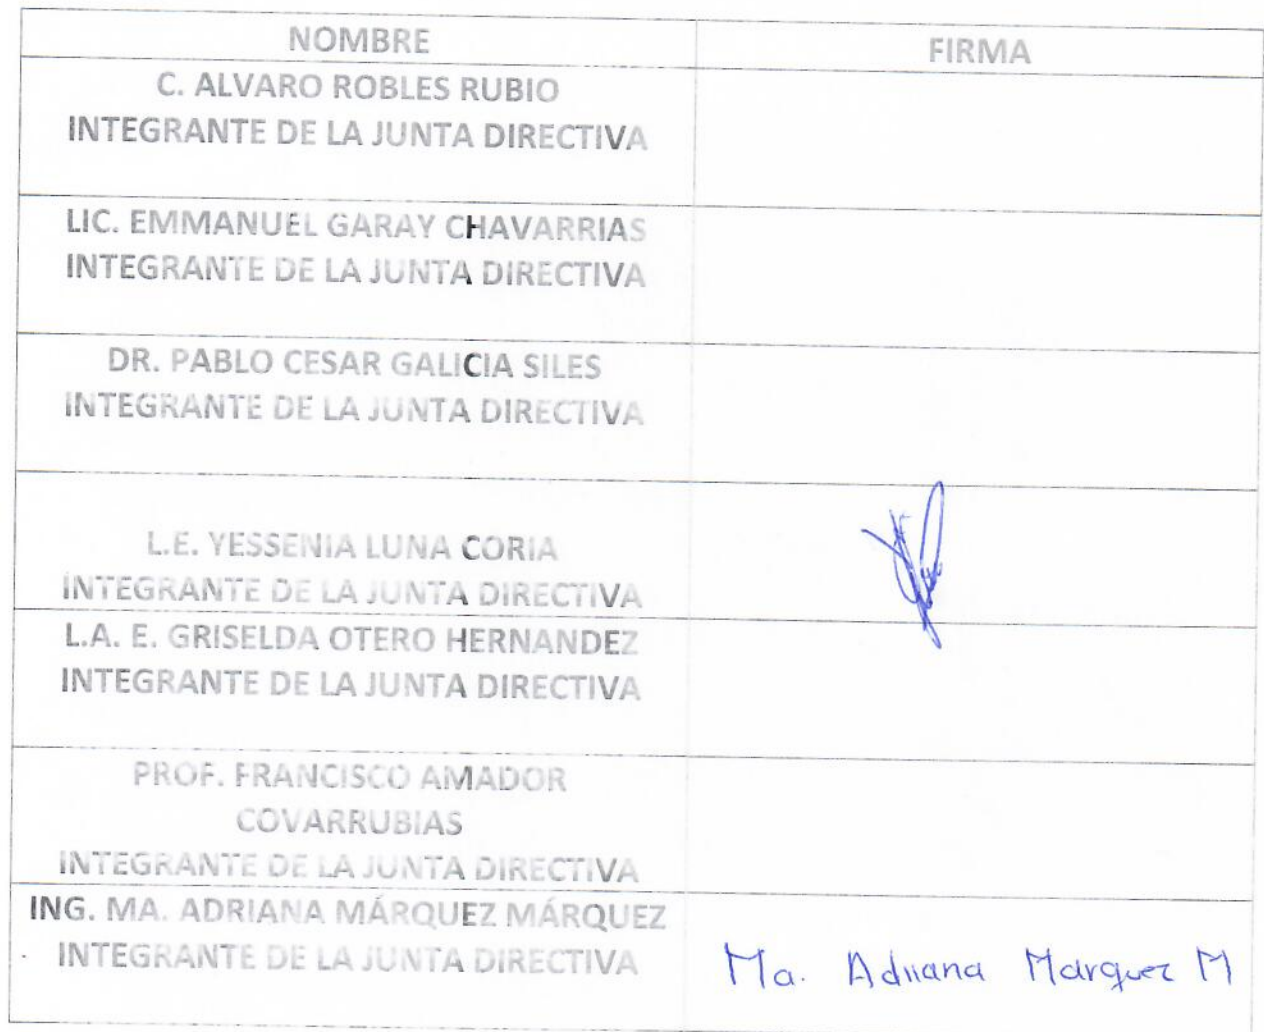 NOMBRE FIRMA
C. ALVARO ROBLES RUBIO
INTEGRANTE DE LA JUNTA DIRECTIVA
LIC. EMMANUEL GARAY CHAVARRIAS
INTEGRANTE DE LA JUNTA DIRECTIVA
DR. PABLO CESAR GALICIA SILES
INTEGRANTE DE LA JUNTA DIRECTIVA
L.E. YESSENIA LUNA CORIA
INTEGRANTE DE LA JUNTA DIRECTIVA
L.A. E. GRISELDA OTERO HERNANDEZ
INTEGRANTE DE LA JUNTA DIRECTIVA
PROF. FRANCISCO AMADOR
COVARRUBIAS
INTEGRANTE DE LA JUNTA DIRECTIVA
ING. MA. ADRIANA MÁRQUEZ MÁRQUEZ
INTEGRANTE DE LA JUNTA DIRECTIVA Ma. Adriana Marquez M